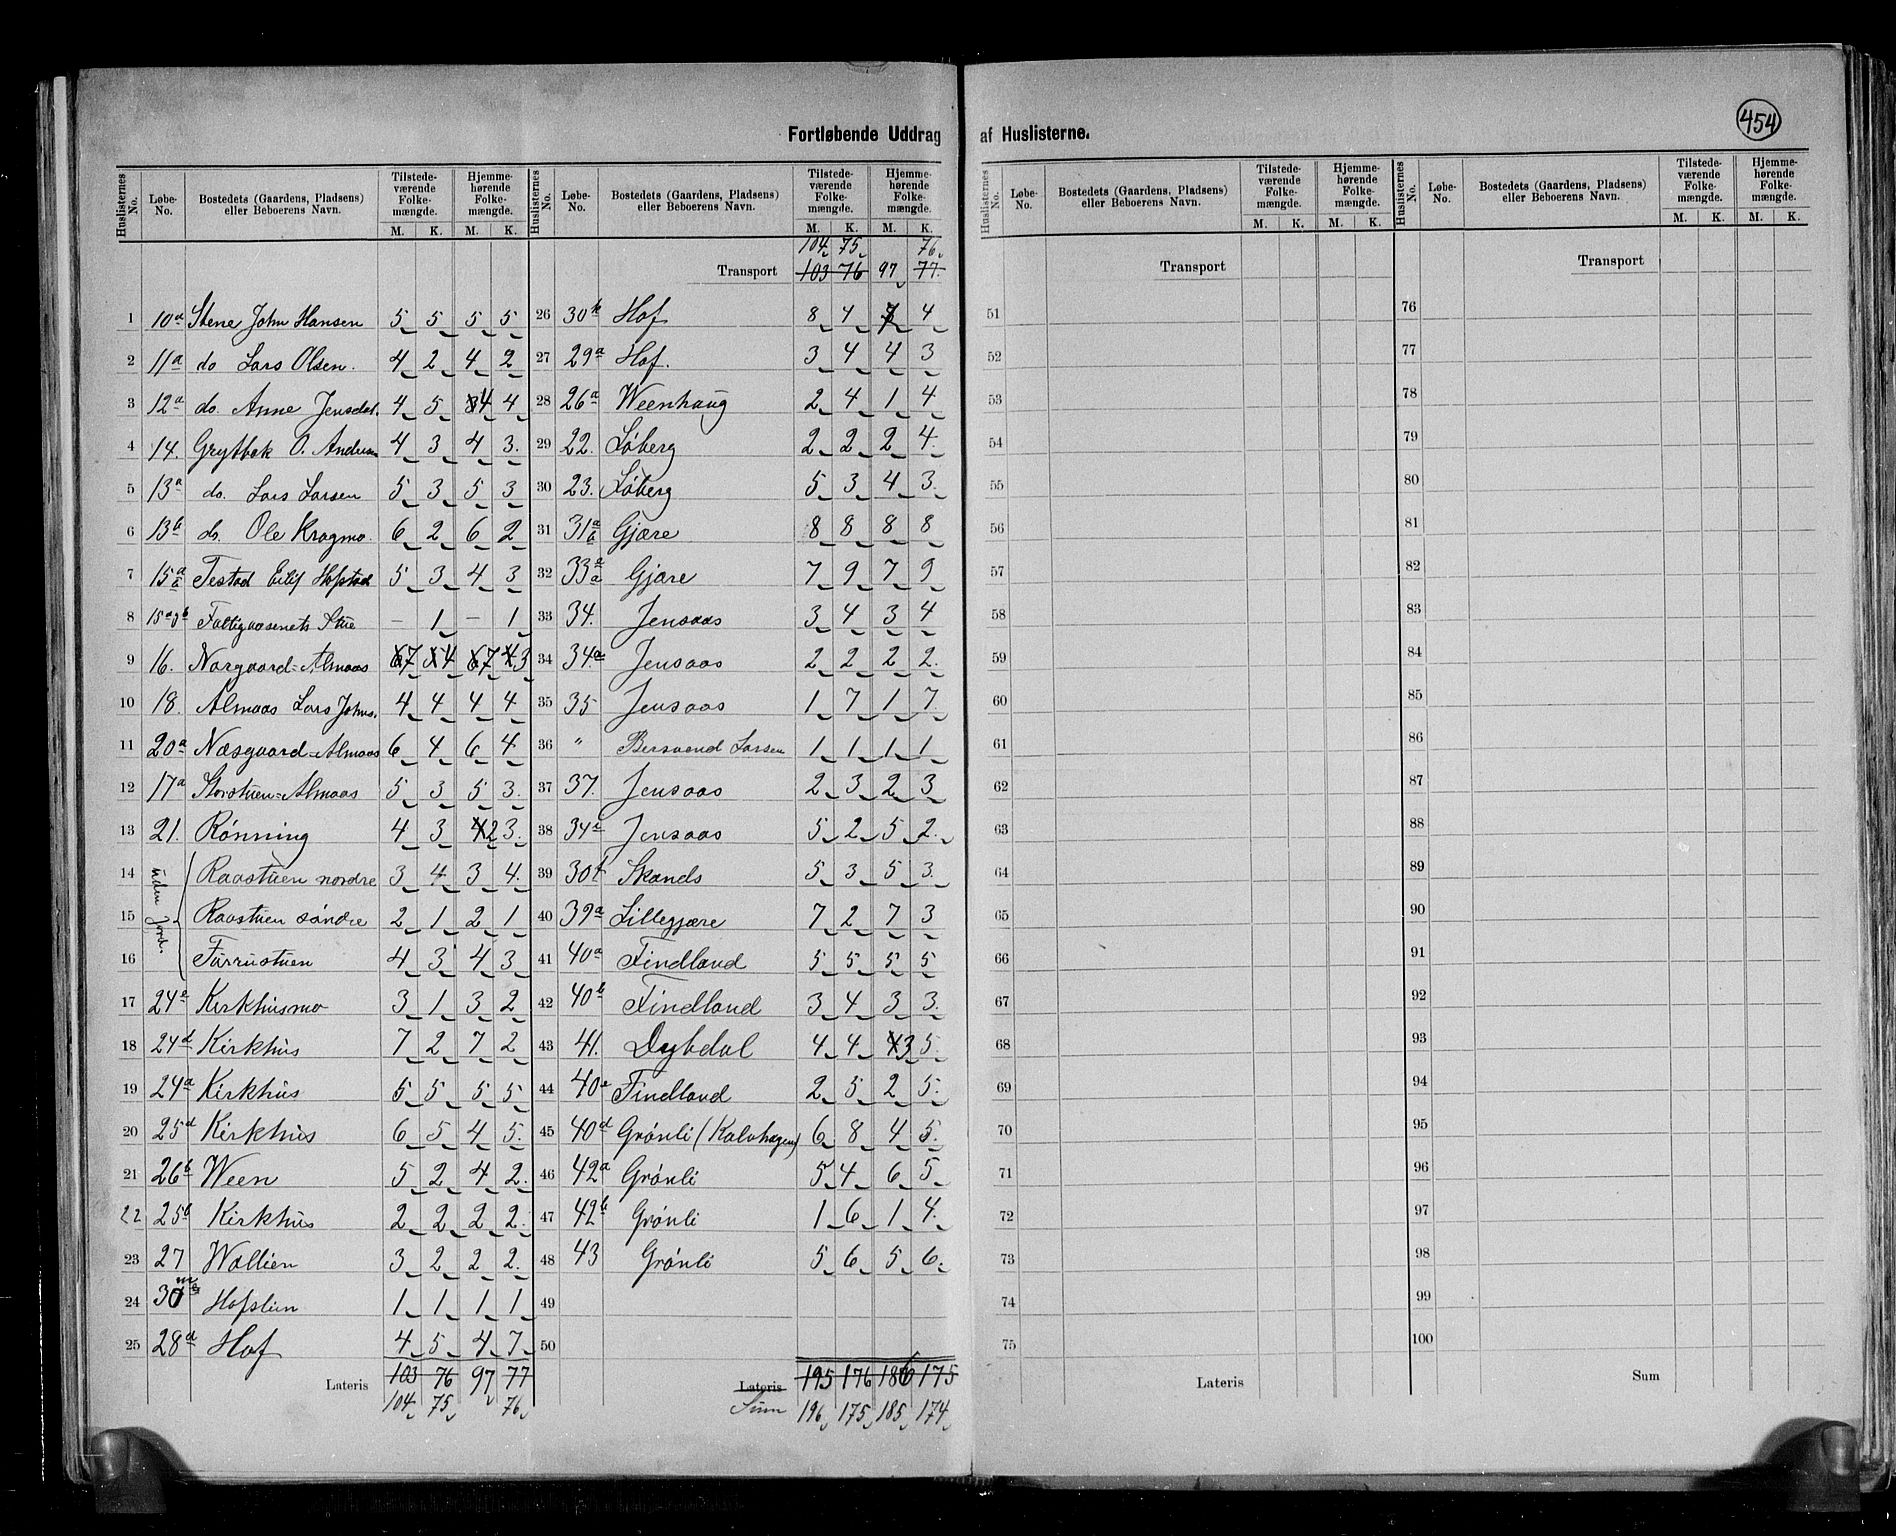 454
Fortløbende Uddrag af Huslisterne.
Huslisternes No. Løbe-No. Bostedets (Gaardens, Pladsens) eller Beboerens Navn. Tilstede-værende Folke-mængde. M. K. Hjemme-hørende Folke-mængde. M. K.
1 10a Stene John Hansen 5 5 5 5
2 11a do Lars Olsen. 4 2 4 2
3 12a do. Anne Jensdat. 4 5 4 4
4 14. Grytbak O. Andersen 4 3 4 3.
5 13a do. Lars Larsen 5 3 5 3
6 13b do. Ole Kragmo. 6 2 6 2
7 15a Testad Eilif Hofstad 5 3 4 3
8 15a Fattigvæsenets Stue – 1 – 1
9 16. Norgaard=Almaas 7 4 7 3
10 18. Almaas Lars Johns. 4 4 4 4
11 20a Næsgaard=Almaas 6 4 6 4
12 17a Storstuen=Almaas 5 3 5 3.
13 21. Rönning 4 3 2 3.
uden Jord.
14 Raastuen nordre 3 4 3 4.
15 Raastuen söndre 2 1 2 1
16 Furrustuen 4 3 4 3
17 24e Kirkhusmo 3 1 3 2
18 24d Kirkhus 7 2 7 2
19 24a Kirkhus 5 5 5 5
20 25d Kirkhus 6 5 4 5.
21 26b Ween 5 2 4 2.
22 25b Kirkhus 2 2 2 2.
23 27 Wollien 3 2 2 2.
24 30 Hofslien 1 1 1 1
25 28d Hof 4 5 4 7
Lateris 103 76 97 77
104 75 76
Huslisternes No. Løbe-No. Bostedets (Gaardens, Pladsens) eller Beboerens Navn. Tilstede-værende Folke-mængde. M. K. Hjemme-hørende Folke-mængde. M. K.
104 75 76
Transport 103 76 97 77.
26 30k Hof 8 4 4
27 29a Hof. 3 4 4 3
28 26a Weenhaug 2 4 1 4
29 22. Löberg 2 2 2 4.
30 23. Löberg 5 3 4 3.
31 31a Gjære 8 8 8 8
32 33a Gjære 7 9 7 9
33 34. Jensaas 3 4 3 4
34 34a Jensaas 2 2 2 2.
35 35 Jensaas 1 7 1 7
36 " Bersvend Larsen 1 1 1 1
37 37. Jensaas 2 3 2 3
38 34c Jensaas 5 2 5 2.
39 30f Skands 5 3 5 3.
40 39a Lillegjære 7 2 7 3
41 40a Findland 5 5 5 5
42 40b Findland 3 4 3 3.
43 41. Dybdal 4 4 3 5
44 40e Findland 2 5 2 5.
45 40d Grönli (Kalvhagen) 6 8 4 5.
46 42a Grönli 5 4 6 5
47 42b Grönli 1 6 1 4.
48 43 Grönli 5 6 5 6.
49
50
Lateris 195 176 186 175
Sum 196 175 185 174
Huslisternes No. Løbe-No. Bostedets (Gaardens, Pladsens) eller Beboerens Navn. Tilstede-værende Folke-mængde. M. K. Hjemme-hørende Folke-mængde. M. K.
Transport
51
52
53
54
55
56
57
58
59
60
61
62
63
64
65
66
67
68
69
70
71
72
73
74
75
Lateris
Huslisternes No. Løbe-No. Bostedets (Gaardens, Pladsens) eller Beboerens Navn. Tilstede-værende Folke-mængde. M. K. Hjemme-hørende Folke-mængde. M. K.
Transport
76
77
78
79
80
81
82
83
84
85
86
87
88
89
90
91
92
93
94
95
96
97
98
99
100
Sum